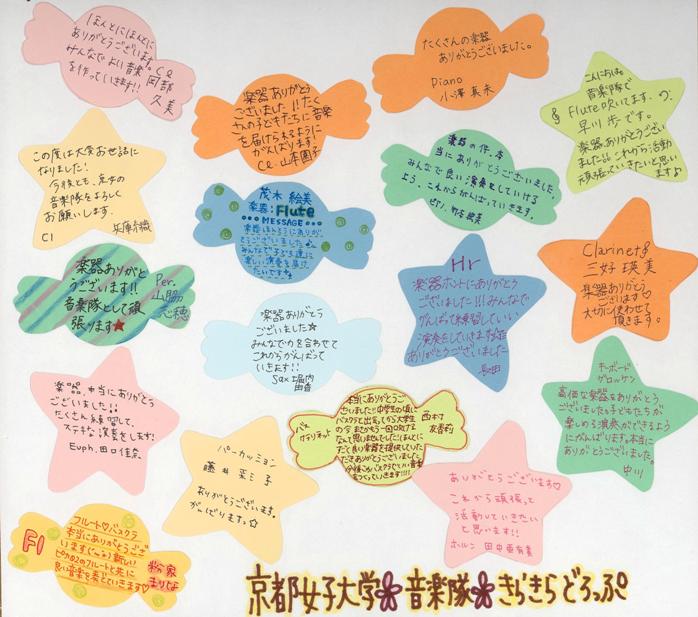 ほんとにほんとに
ありがとうございます。
みんなでよい音楽
を作っていきます!!
Ce 岡部
久美
楽器ありがとう
ございました!!たく
さんの子どもたちに音楽
を届けられるように
がんばります。
Ce. 山本
たくさんの楽器
ありがとうございました。
Piano
小澤 真未
こんにちは。
音楽隊で
Flute吹いてます、の、
早川 歩です。
楽器ありがとうござい
ました これから活動
頑張っていきたいと思い
ます♪
この度は大学お世話に
なりました!
今後とも、京女の
音楽隊をよろしく
お願いします。
Cl
茂木 絵美
楽器:Flute
•••MESSAGE•••
楽器ほんとうにありが
とうございました
みんなで子ども達に
楽しい演奏を届け
たいですね
楽器の件、本
当にありがとうございました。
みんなで良い演奏をしていける
よう、これからがんばっていきます。
Clarinet
三好 瑛美
楽器ありがとう
ございます♡
大切に使わせて
頂きます。
楽器ありがと
うございます!!
音楽隊として頑
張ります★
Per.
山脇
心穂
Hr
楽器ホントにありがとう
ございました!!!みんなで
がんばって練習していい
演奏をしていきます
ありがとうございました
長田
楽器ありがとう
ございました☆
みんなで力を合わせて
これからがんばって
いきます!!
Sax 堀内
由香
楽器、本当にありがとう
ございました!!
たくさん練習して、
ステキな演奏をします!
Euph. 田口佳奈
キーボード
グロッケン
高価な楽器をありがとう
ございました 子どもたちが
楽しめる演奏ができるよう
にがんばります。本当に
ありがとうございました。
中川
バス
クラリネット
本当にありがとうご
ざいました!!中学生の頃に
バスクラと出会ってから大学生
の今、まさかもう一回吹ける
なんて思いませんでした!ほんとに
すてき良い楽器を提供していた
だきありがとうございました。
西村
友香莉
パーカッション
藤井 彩子
ありがとうございます。
がんばりますっ☆
ありがとうございます♡
これから頑張って
活動していきたい
と思います!!
ホルン 田中亜有美
Fl
フルート♡バスクラ
本当にありがとうござ
います(^^)新しい
ピカピカのフルートと共に
良い音楽を奏でていきます♡
粉家
まりな
京都女子大学 音楽隊 きらきらどろっぷ